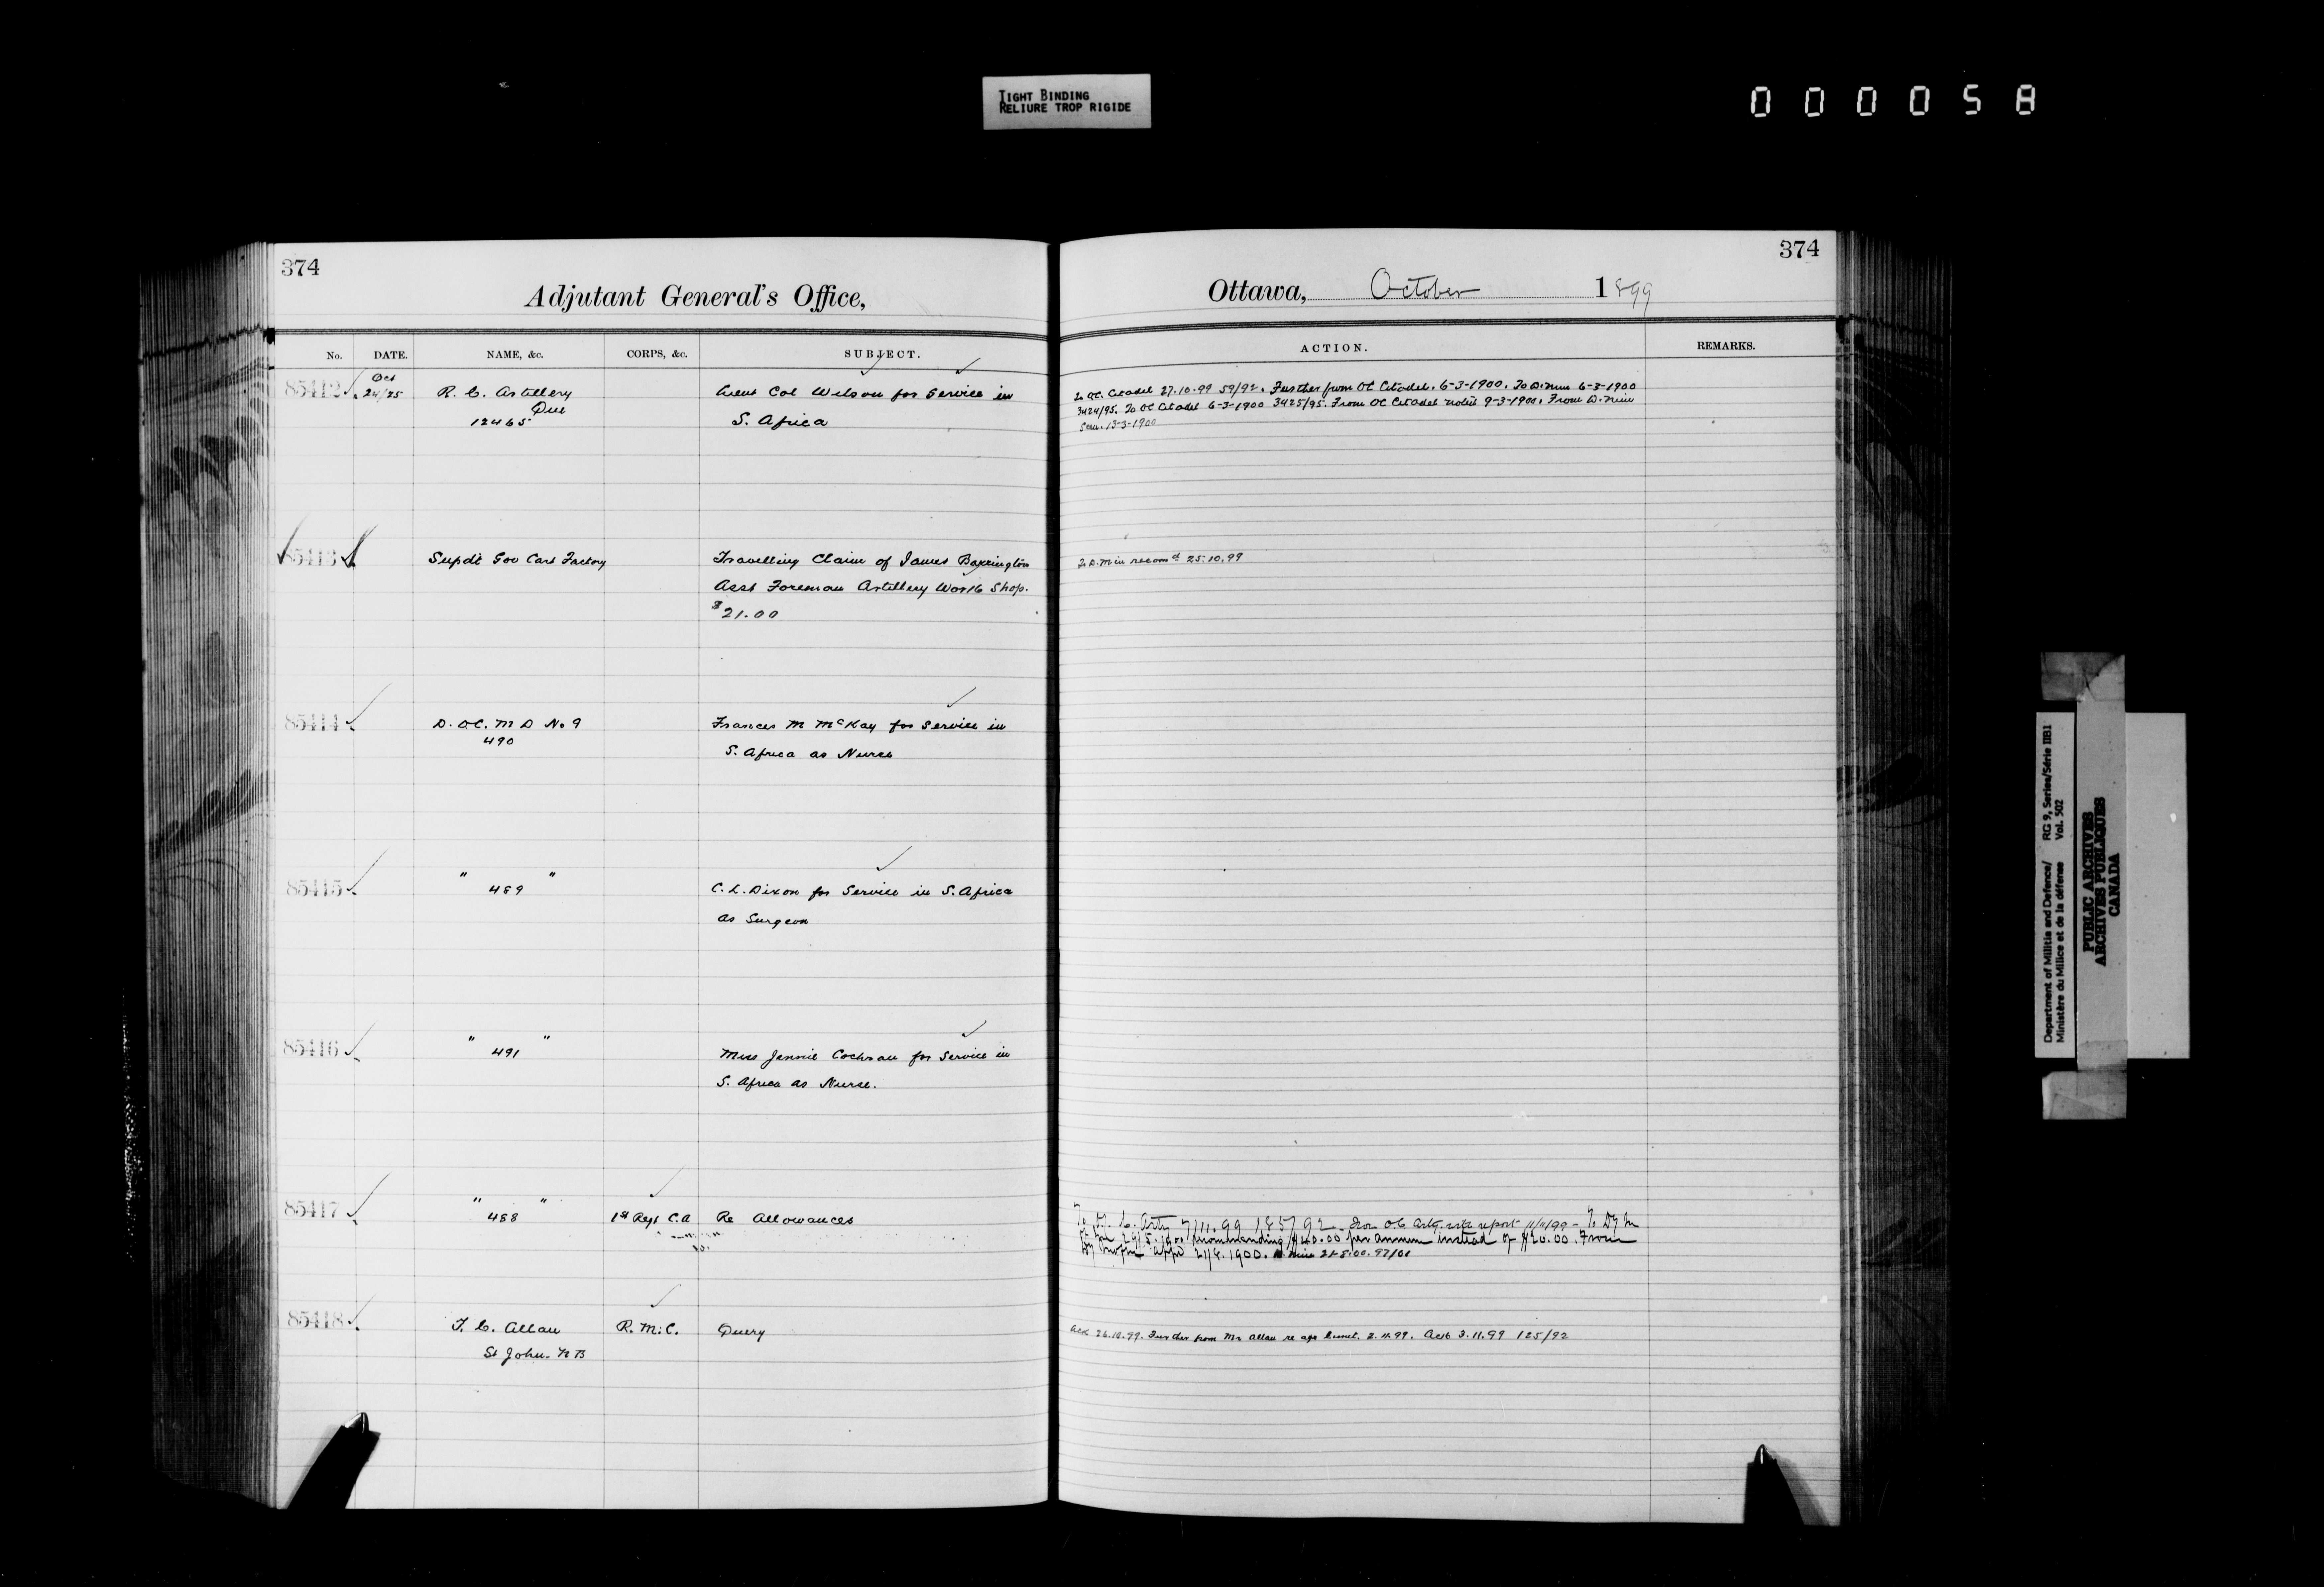 TIGHT BINDING
RELIURE TROP RIGIDE
000058
374
Adjutant General's Office,
No. DATE. NAME, &c. CORPS, &c. SUBJECT.
85412 Oct 24/25 R. C. Artillery Lieut Col Wilson for Service in
Que
12465 S. Africa
85413 Supdt Gov Cart Factory Travelling Claim of James Barrington
Asst Foreman Artillery Work Shop.
$21.00
85414 D.O.C. M D No 9 Frances M McKay for Service in
490 S. Africa as Nurse
85415 " 489 " C. L. Dixon for Service in S. Africa
as Surgeon
85416 " 491 " Miss Jennie Cochran for Service in
S. Africa as Nurse.
85417 " 488 " 1st Regt C.A Re Allowances
85418 T. C. Allan R.M.C. Query
St John. N B
374
Ottawa, October 1899
ACTION. REMARKS.
To OC. Citadel 27.10.99 59/92. Further from OC Citadel. 6-3-1900. To D. Min 6-3-1900
3424/95. To OC Citadel 6-3-1900 3425/95. From OC Citadel noted 9-3-1900. From D. Min
13-3-1900
To D. Min recomd 25.10.99
To 7/11.99 185/92 From OC Arty with report 11/11/99 - To
29/5.1900 recommending $40.00 per annum instead of $20.00. From
1900. 97/01
Ack 26.10.99. Further from Mr Allan re age limit. 2.11.99. Ack 3.11.99 125/92
Department of Militia and Defence/ RG 9, Series/Série IIB1
Ministère du Milice et de la défense Vol. 502
PUBLIC ARCHIVES
ARCHIVES PUBLIQUES
CANADA